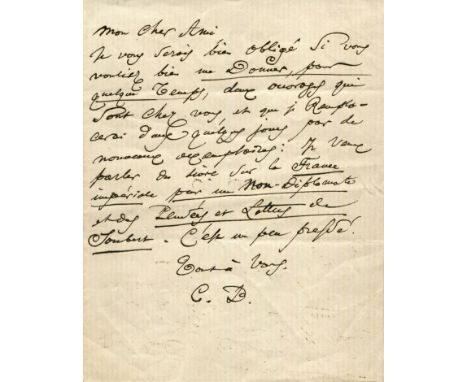 Mon cher Ami
Je vous serais bien obligé si vous
vouliez bien me donner, pour
quelque temps, deux ouvrages qui
sont chez vous et que je rempla-
cerai dans quelques jours par de
nouveaux exemplaires : Je veux
parler du livre sur la France
impériale par un Non-Diplomate
et des Pensées et Lettres de
Joubert - C'est un peu pressé.
Tout à vous.
C. D.